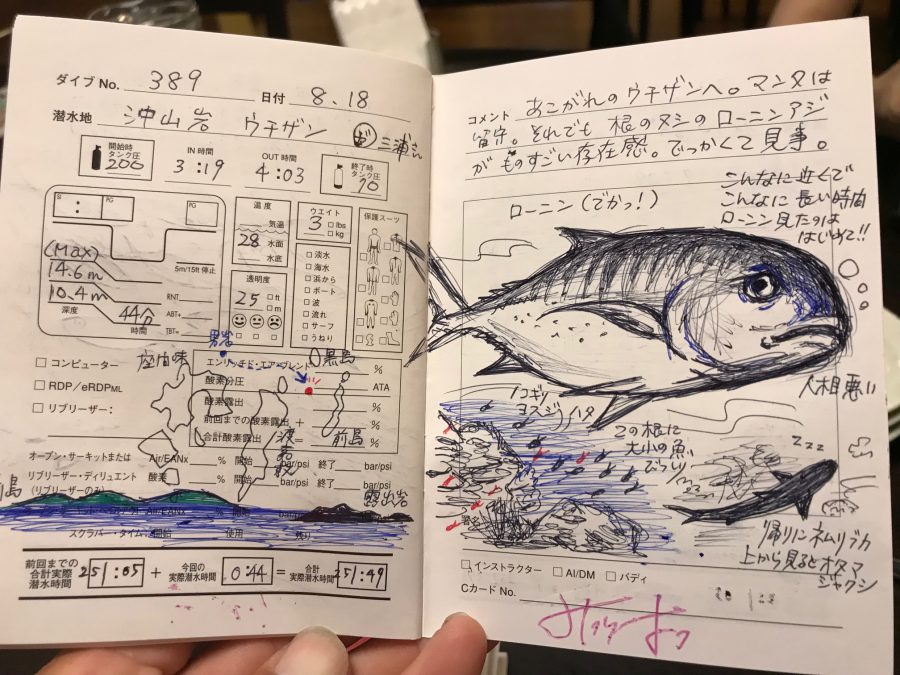 ダイブ No. 389
日付 8.18
潜水地 沖山岩 ウチザン
三浦さん
開始時タンク圧 200
IN 時間 3:19
OUT 時間 4:03
終了時タンク圧 70
SI :
PG
PG
(Max)
14.6m
10.4m
深度
5m/15ft 停止
RNT
ABT+
TBT=
44分
時間
温度
気温
28 水面
水底
透明度
25 □ft □m
ウエイト
3 □lbs □kg
□淡水
□海水
□浜から
□ボート
□波
□流れ
□サーフ
□うねり
保護スーツ
□コンピューター
□RDP/eRDPML
□リブリーザー：
座間味
男岩
黒島
エンリッチド・エア・ブレンド %
酸素分圧 ATA
酸素露出 %
前回までの酸素露出 + %
合計酸素露出 = %
渡嘉敷
前島
オープン・サーキットまたは Air/EANx % 開始 bar/psi 終了 bar/psi
リブリーザー・ディリュエント 酸素 % 開始 bar/psi 終了 bar/psi
(リブリーザーのみ)
島
露出岩
スクラバー・タイム：開始 使用 残り
前回までの合計実際潜水時間 251:05 + 今回の実際潜水時間 0:44 = 合計実際潜水時間 251:49
コメント あこがれのウチザンへ。マンタは
留守。それでも 根のヌシのローニンアジ
がものすごい存在感。でっかくて見事。
ローニン(でかっ!)
こんなに近くで
こんなに長い時間
ローニン見たのは
はじめて!!
人相悪い
ノコギリ
ヨスジ ハタ
この根に
大小の魚
びっしり
zzz
帰りにネムリブカ
上から見るとオタマ
ジャクシ
□インストラクター □AI/DM □バディ
Cカード No.